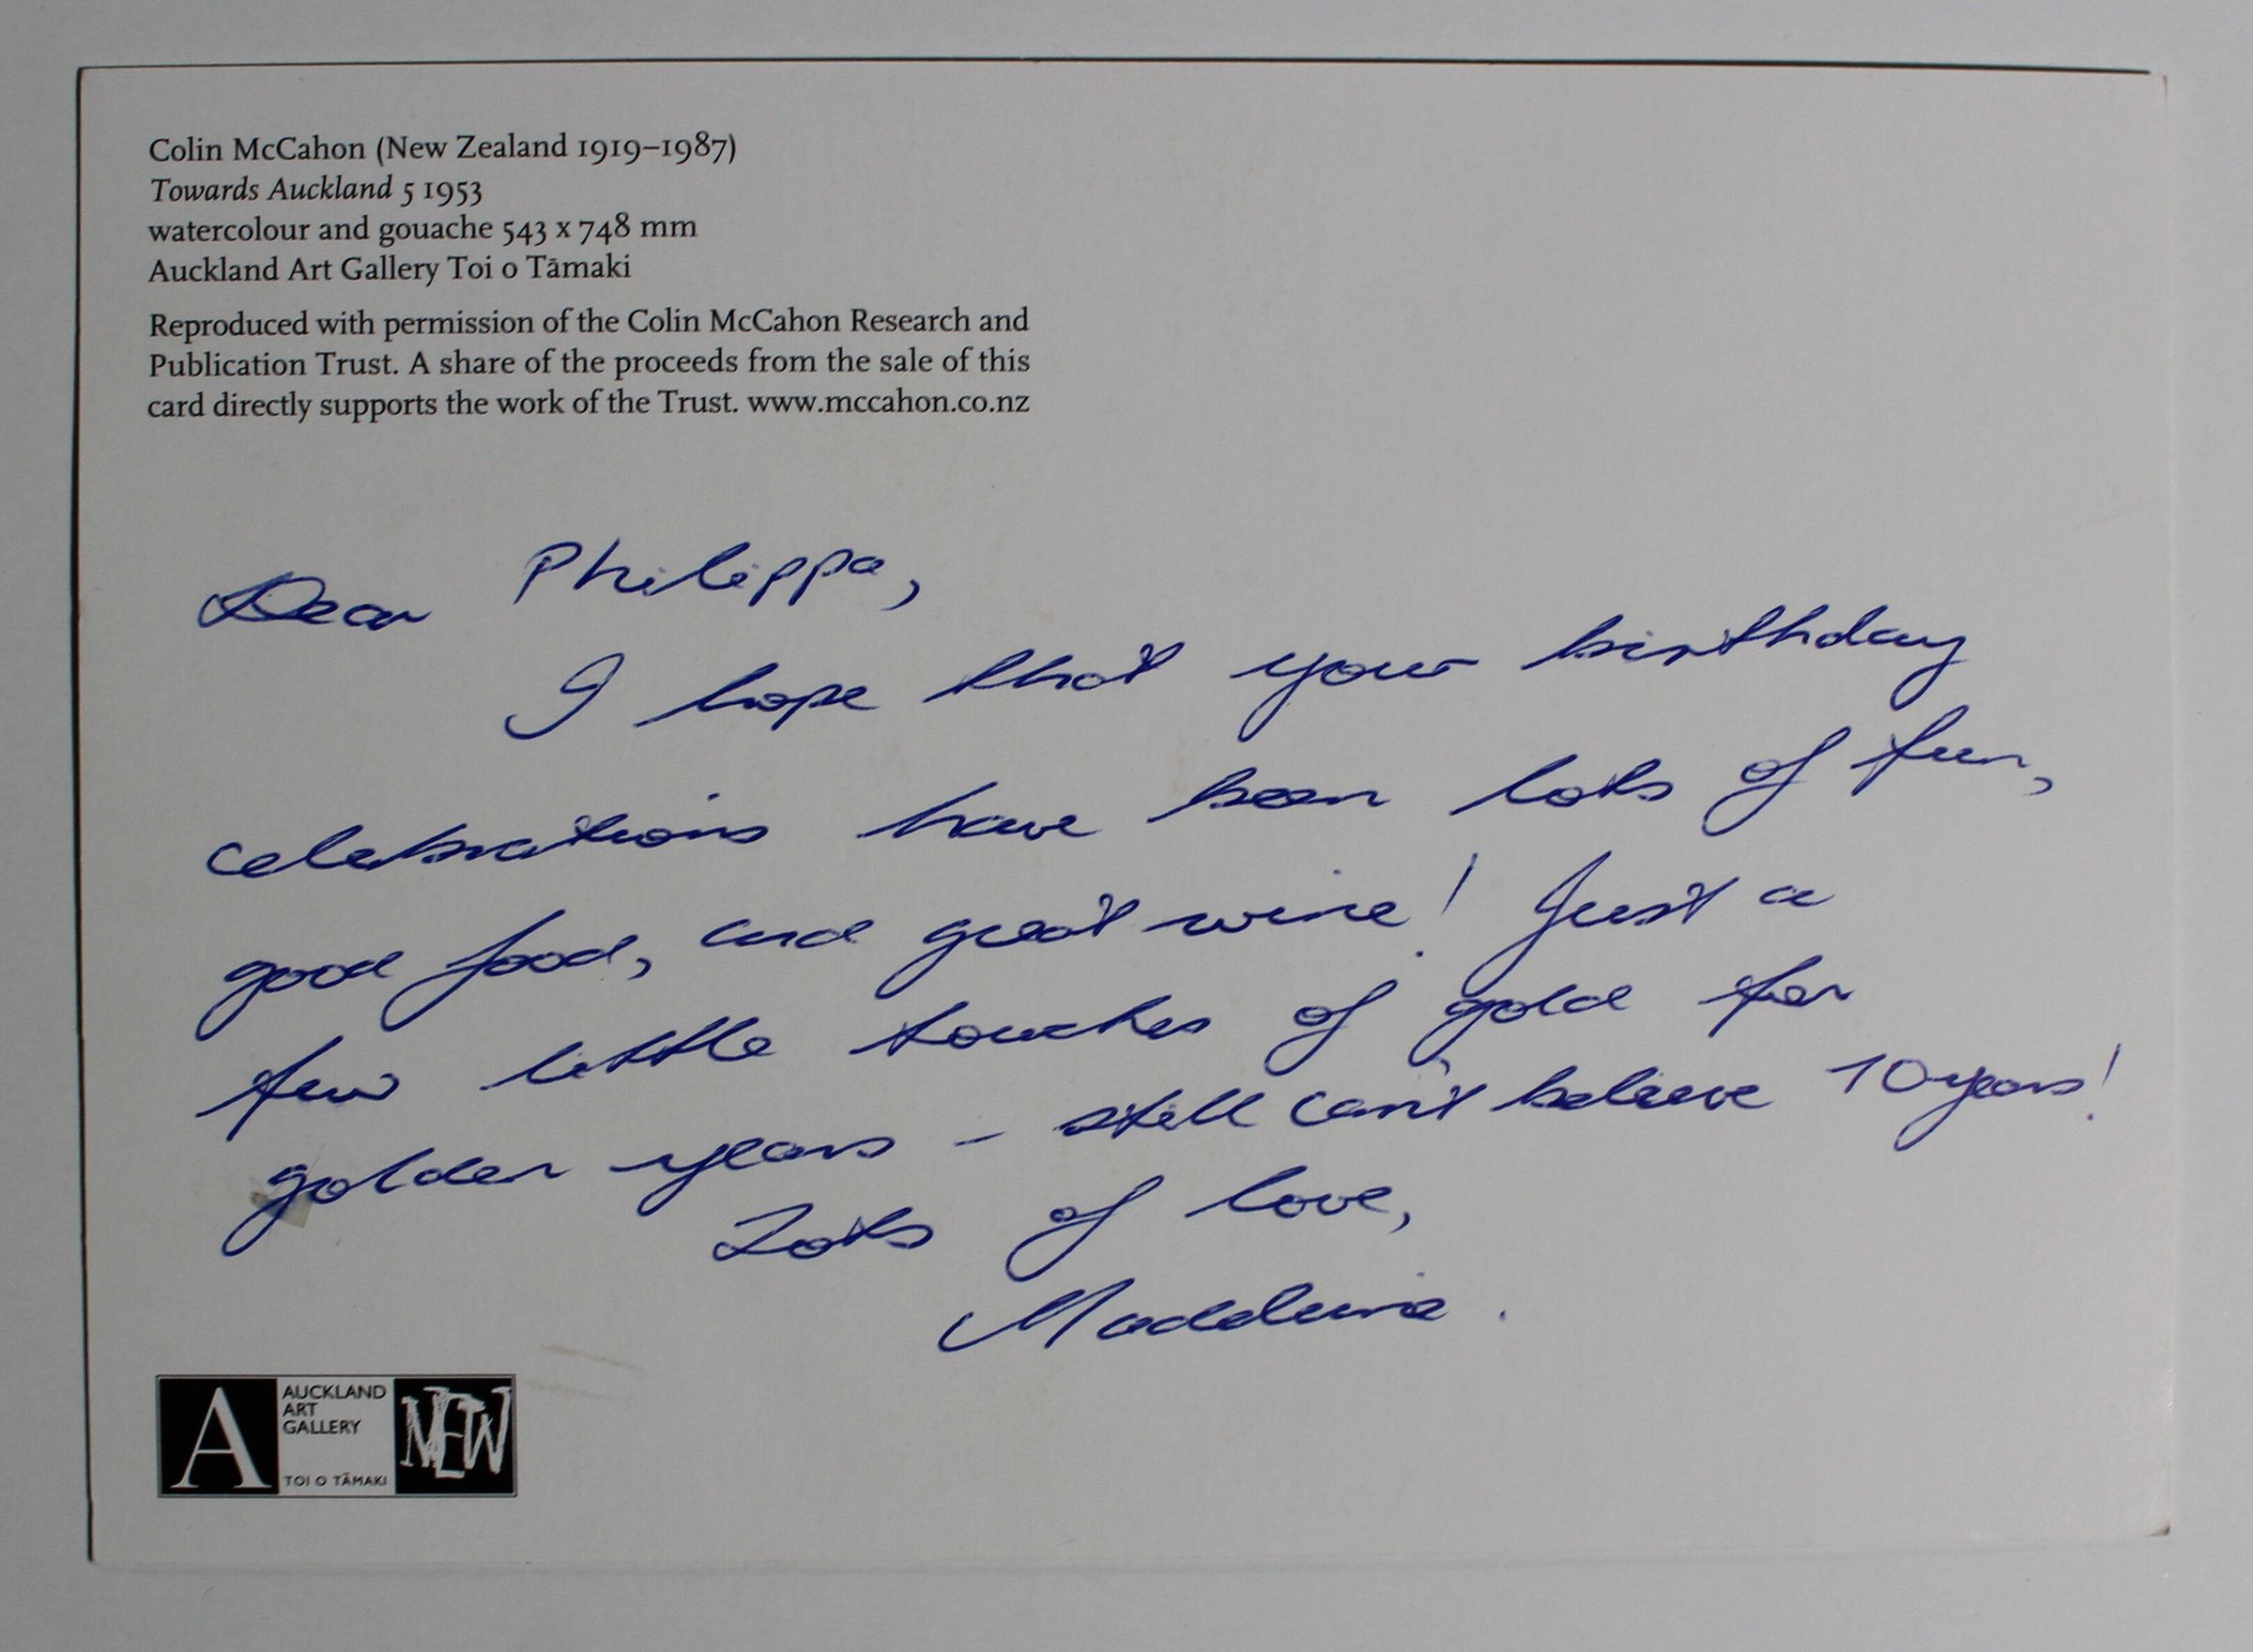 Colin McCahon (New Zealand 1919–1987)
Towards Auckland 5 1953
watercolour and gouache 543 x 748 mm
Auckland Art Gallery Toi o Tāmaki
Reproduced with permission of the Colin McCahon Research and
Publication Trust. A share of the proceeds from the sale of this
card directly supports the work of the Trust. www.mccahon.co.nz
Dear Philippa,
I hope that your birthday
celebrations have been lots of fun,
good food, and great wine! Just a
few little touches of gold for
golden years – still can't believe 10 years!
Lots of love,
Madeleine.
A
AUCKLAND
ART
GALLERY
TOI O TĀMAKI
NEW